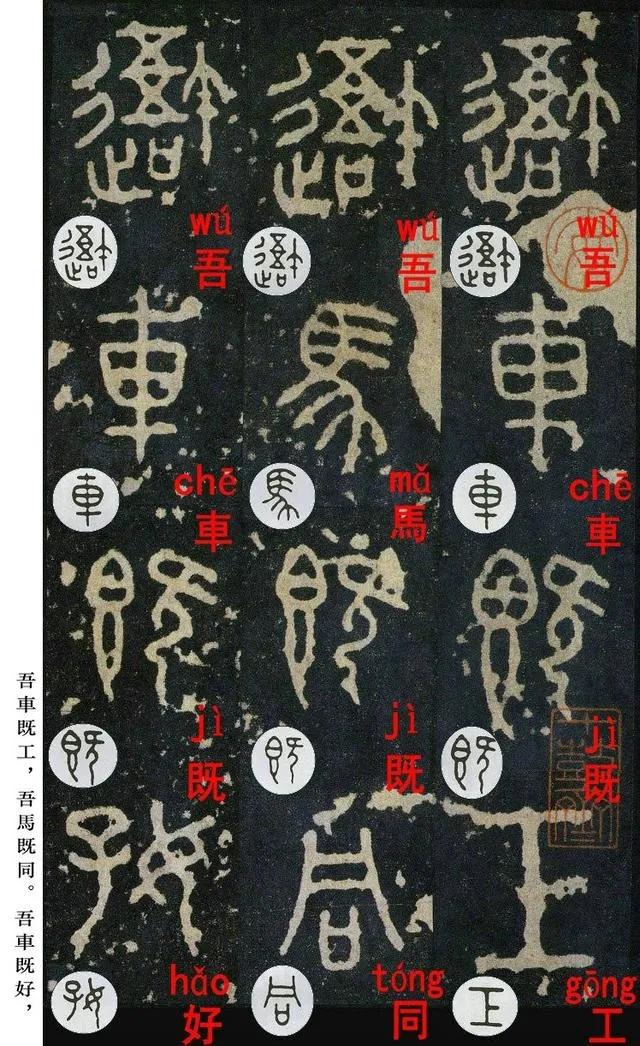 wú
吾
chē
車
jì
既
gōng
工
wú
吾
mǎ
馬
jì
既
tóng
同
wú
吾
chē
車
jì
既
hǎo
好
吾車既工，吾馬既同。吾車既好，